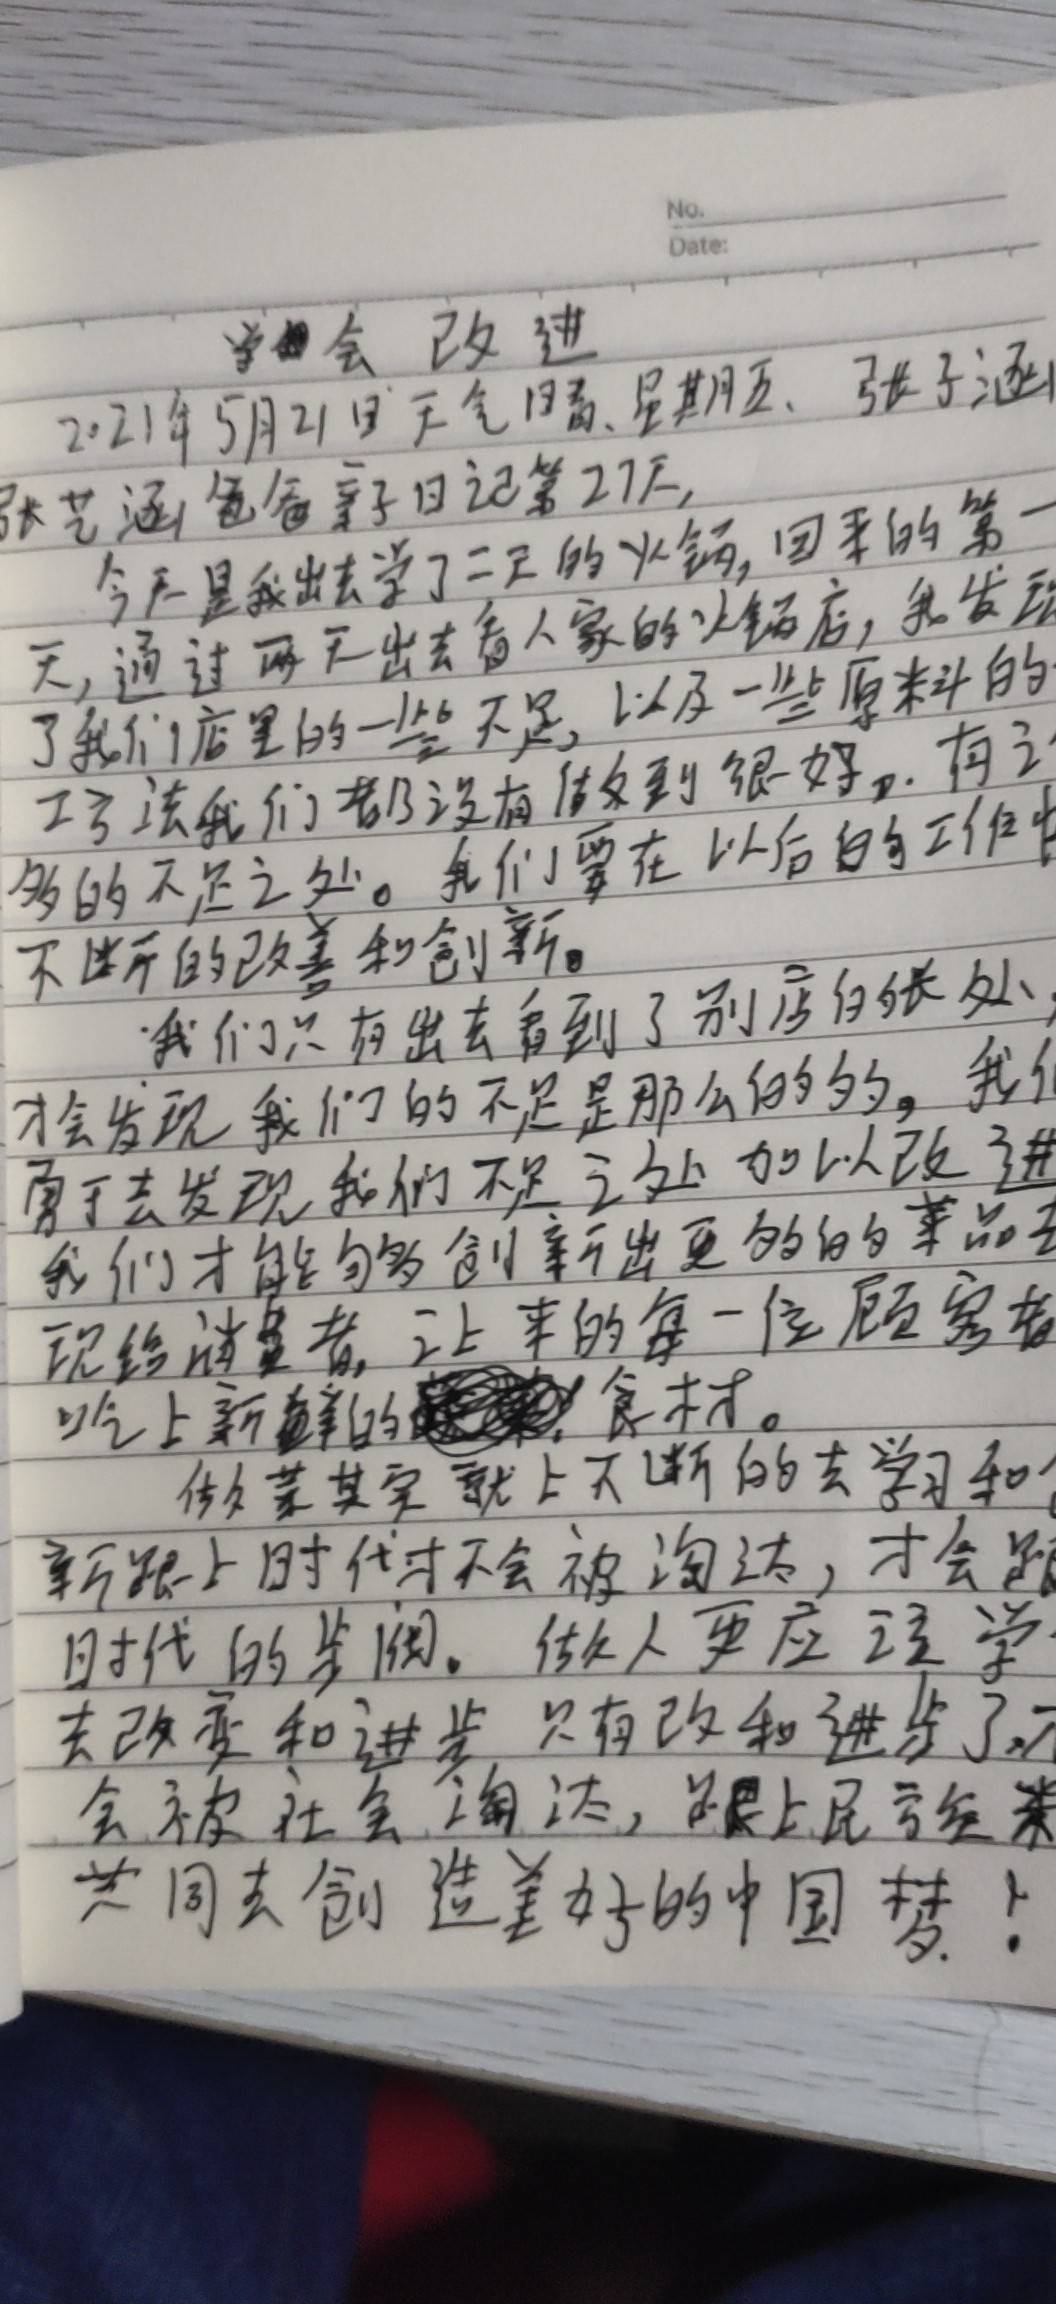 No.
Date:
学会改进
2021年5月21日天气晴、星期五、张子涵
张艺涵爸爸亲子日记第27天,
今天是我出去学了二天的火锅,回来的第一
天,通过两天出去看人家的火锅店,我发现
了我们店里的一些不足,以及一些原料的
工方法我们都没有做到很好。有
多的不足之处。我们要在以后的工作中
不断的改善和创新。
我们只有出去看到了别店的长处,
才会发现我们的不足是那么的多。我们
勇于去发现我们不足之处加以改进
我们才能够创新出更多的的菜品
现给消费者,让来的每一位顾客都
吃上新鲜的食材。
做菜其实就上不断的去学习和
新跟上时代才不会被淘汰,才会跟
时代的步伐。做人更应该学
去改变和进步只有改和进步了,不
会被社会淘汰,跟上民
共同去创造美好的中国梦!